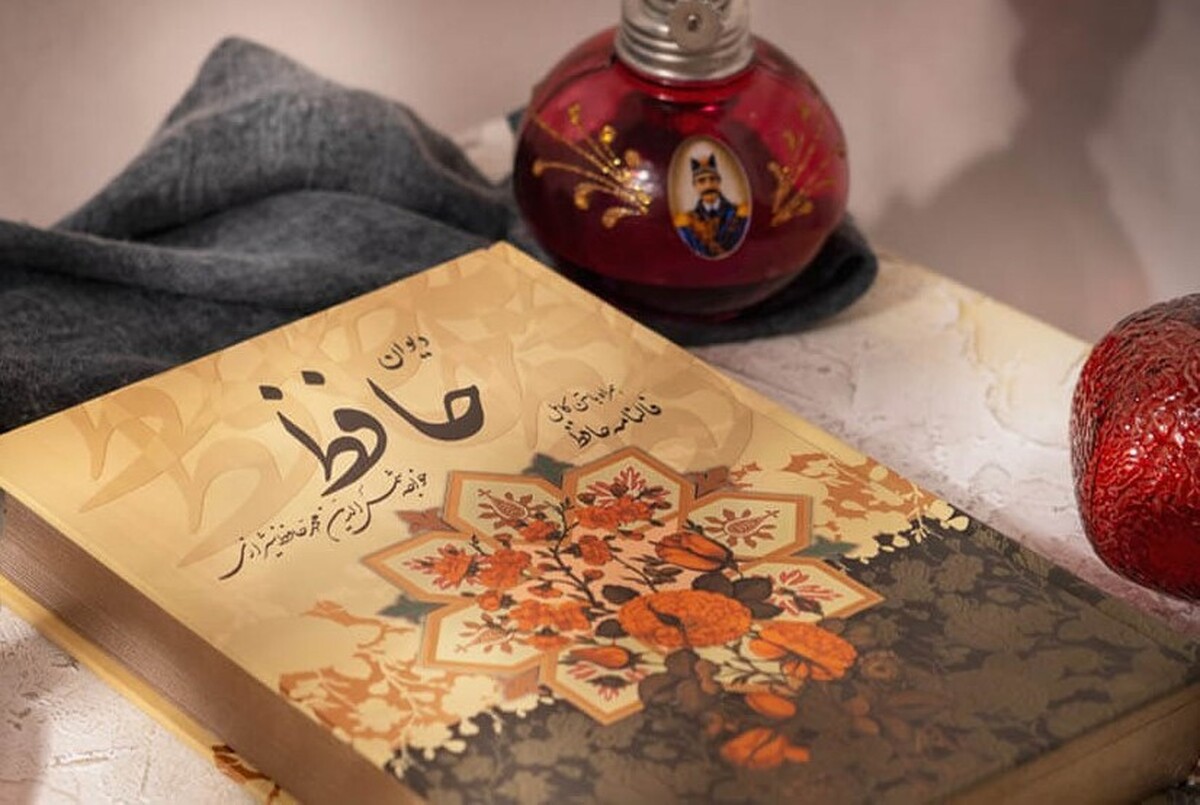 دیوان
حافظ
همراه با متن کامل
فالنامه حافظ
خواجه شمس الدین محمد حافظ شیرازی